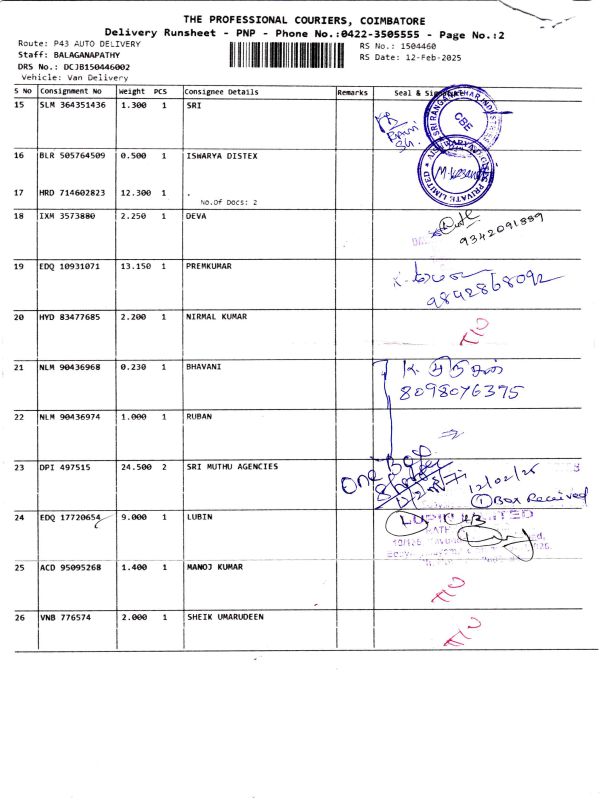 THE PROFESSIONAL COURIERS, COIMBATORE
Delivery Runsheet - PNP - Phone No.:0422-3505555 - Page No.:2
Route: P43 AUTO DELIVERY
Staff: BALAGANAPATHY
DRS No.: DCJB150446002
Vehicle: Van Delivery
RS No.: 1504460
RS Date: 12-Feb-2025
S No Consignment No Weight PCS Consignee Details Remarks Seal &
15 SLM 364351436 1.300 1 SRI
CBE
16 BLR 505764509 0.500 1 ISWARYA DISTEX
PRIVATE LIMITED
17 HRD 714602823 12.300 1 .
No.Of Docs: 2
18 IXM 3573880 2.250 1 DEVA
9342091889
19 EDQ 10931071 13.150 1 PREMKUMAR
9842868092
20 HYD 83477685 2.200 1 NIRMAL KUMAR
21 NLM 90436968 0.230 1 BHAVANI
8098076375
22 NLM 90436974 1.000 1 RUBAN
23 DPI 497515 24.500 2 SRI MUTHU AGENCIES
One Box
12/02/25
1 Box Received
24 EDQ 17720654 9.000 1 LUBIN
25 ACD 95095268 1.400 1 MANOJ KUMAR
26 VNB 776574 2.000 1 SHEIK UMARUDEEN